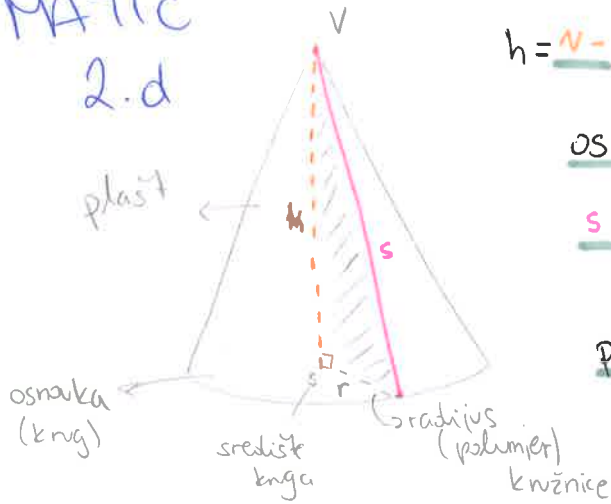 MATIĆ
2.d
V
h =
OS
plašt
h
s
s
s
r
osnovka
(krug)
središte
kruga
radijus
(polumjer)
kružnice